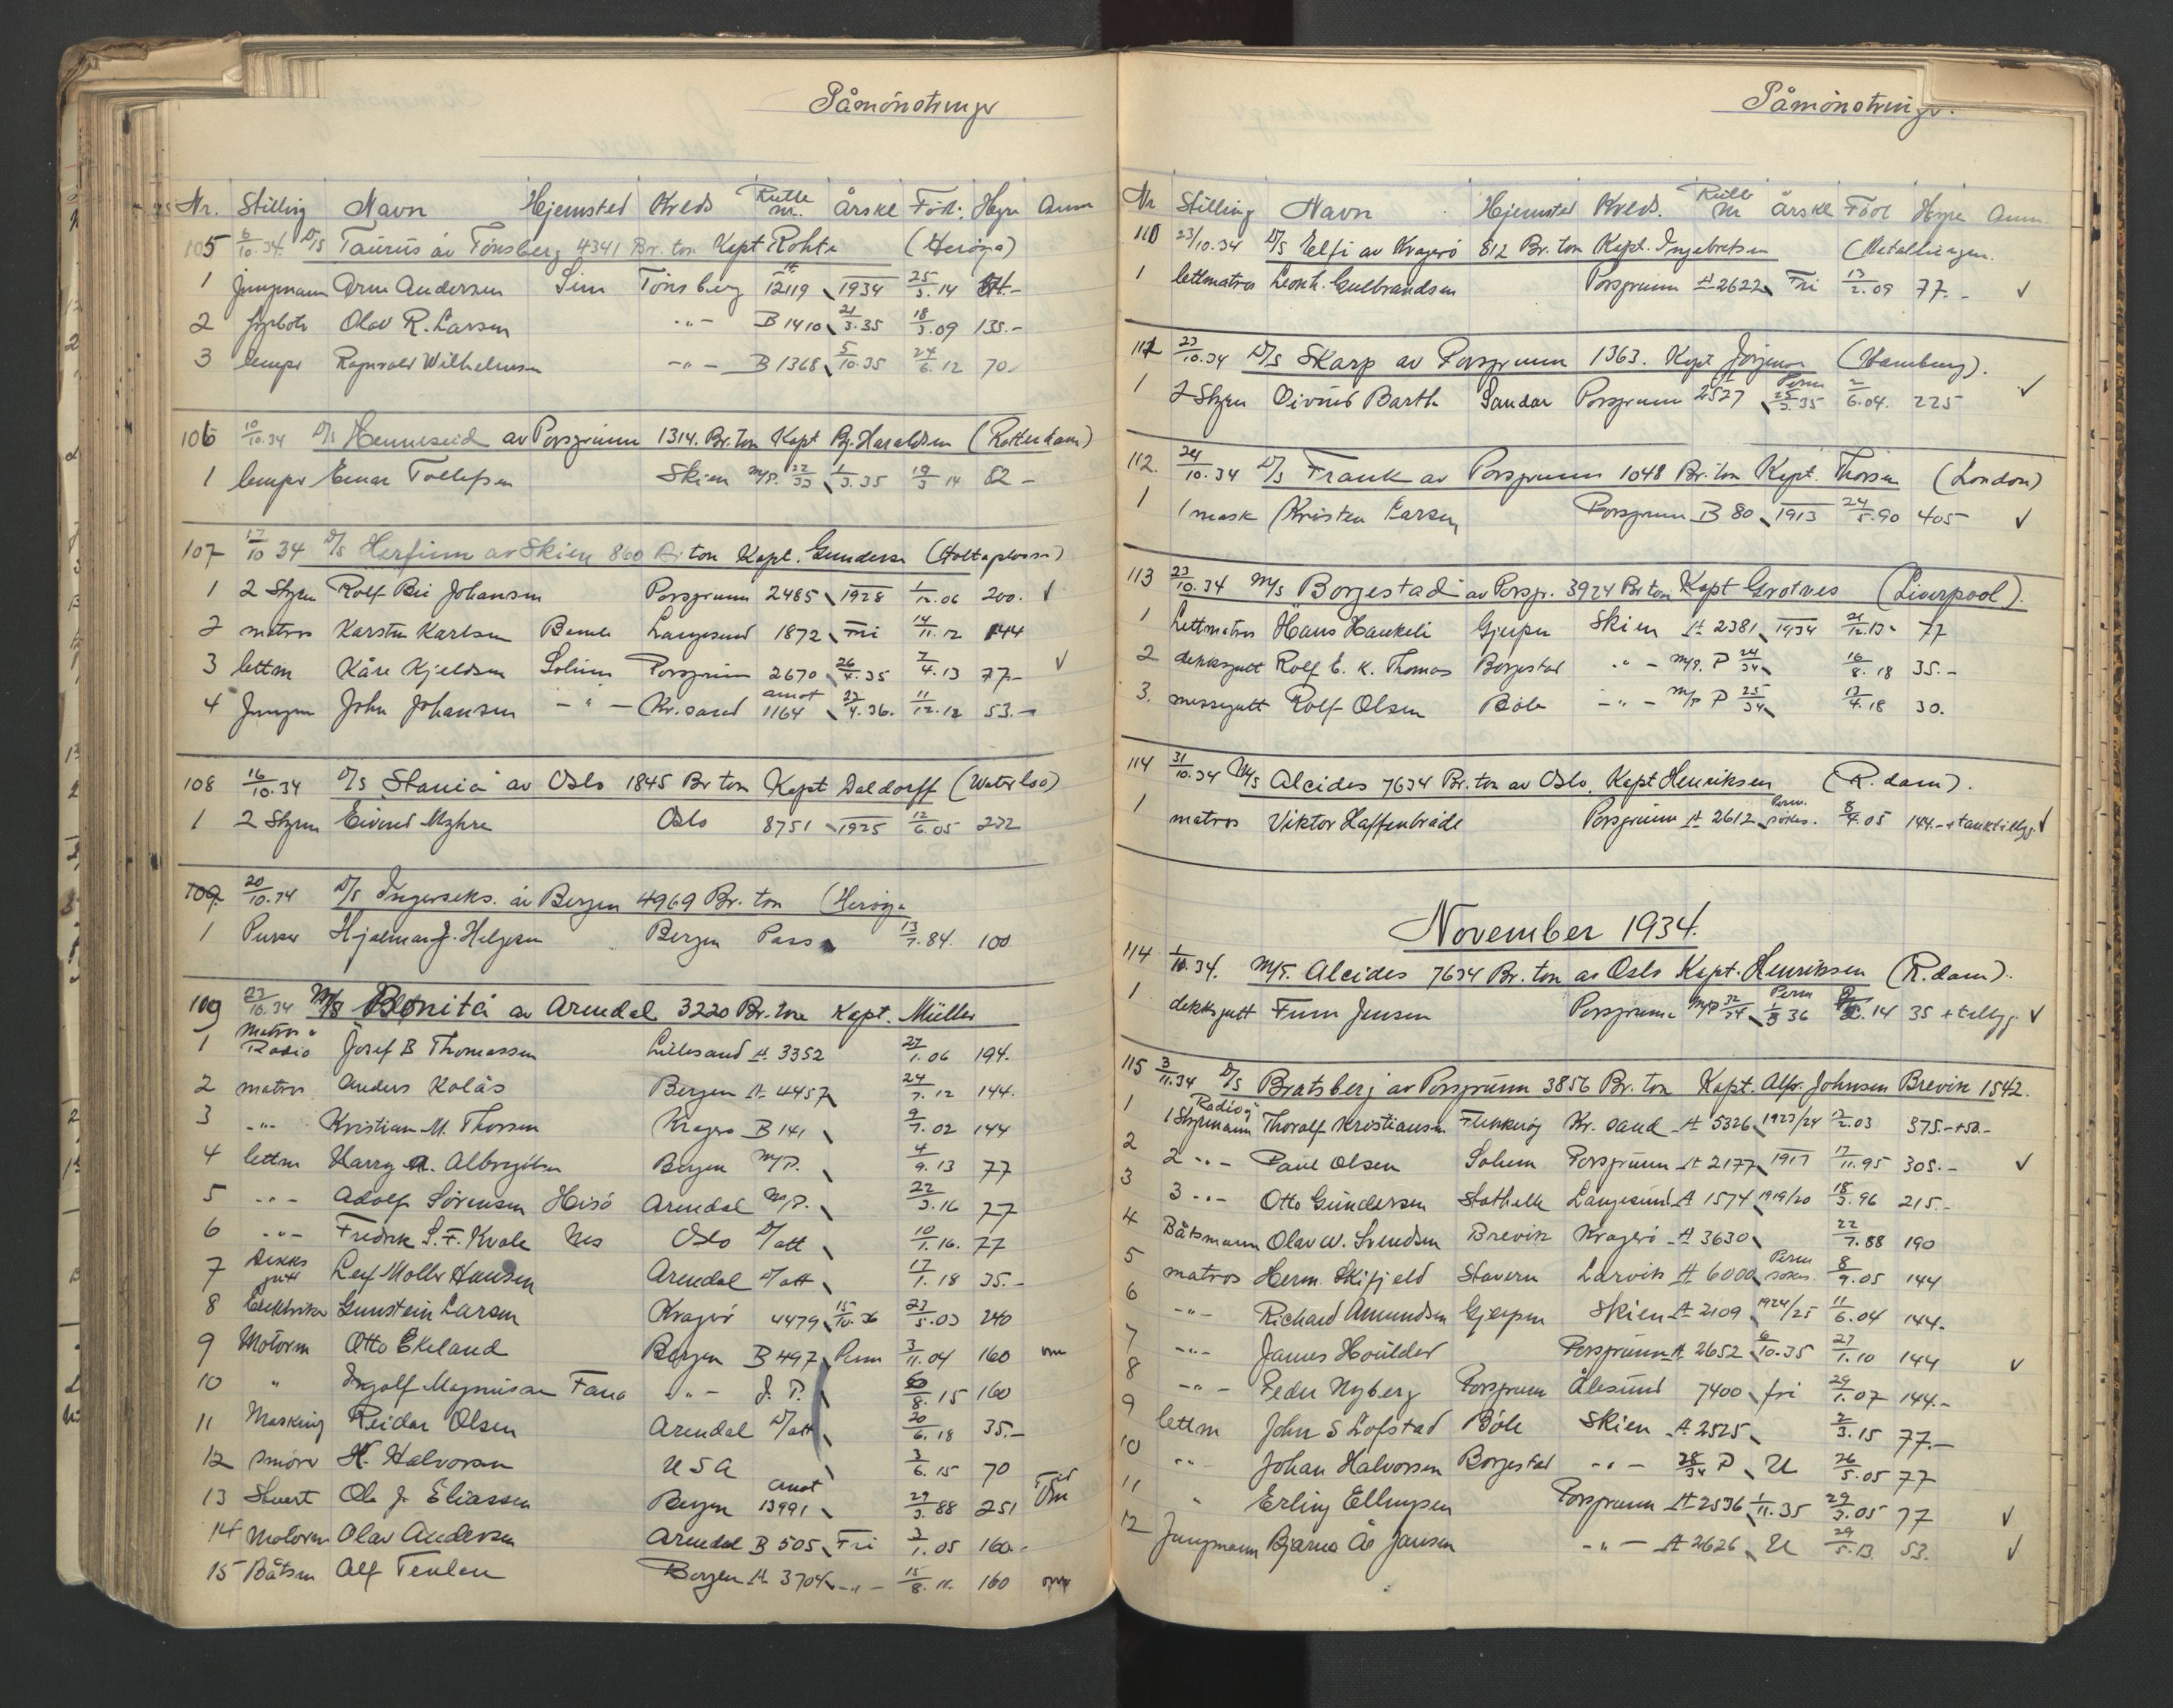 Påmönstringer
Nr. Stilling Navn Hjemsted Kreds Rulle nr. Årskl Föd. Hyre Anm
105 6/10.34 D/S Taurus av Tönsberg 4341 Br. ton Kapt Rohte (Heröya)
1 Jungmann Arne Andersen Sem Tönsberg 12119 1934 25/3.14
2 fyrböter Olav R. Larsen -"- B 1410 21/3.35 18/3.09 135.-
3 lemper Ragnvald Wilhelmsen -"- B 1368 5/10.35 24/6.12 70.-
106 10/10.34 D/S Henneseid av Porsgrunn 1314. Br. ton Kapt Bj. Haraldsen (Rotterdam)
1 lemper Einar Tollefsen Skien M/P. 22/33 1/3.35 19/3 14 82 -
107 17/10 34 D/S Herfinn av Skien 860 Br ton Kapt. Gundersen
1 2 Styrm Rolf Bie Johansen Porsgrunn 2485 1928 1/12.06 200. ✓
2 matros Karsten Karlsen Bamle Langesund 1872 Fri 14/11.12 144
3 lettm Kåre Kjeldsen Solum Porsgrunn 2670 26/4.35 7/4.13 77.- ✓
4 Jungm John Johansen -"- Kr.sand annot 1164 23/4.36. 11/12.12 53.-
108 16/10.34 D/S "Stania" av Oslo 1845 Br ton Kapt Daldorff (Waterloo)
1 2 Styrm Eivind Myhre Oslo 8751 1925 12/6.05 232
109. 20/10.34 D/S Ingerseks. av Bergen 4969 Br. ton (Heröya
1 Purser Hjalmar J. Helgesen Bergen Pass 13/7.84. 100
109 23/10.34 M/S Bonita av Arendal 3220 Br. ton Kapt. Müller
1 Matros & Radio Josef B Thomassen Lillesand A 3352 27/1.06 194.
2 matros Anders Kolås Bergen A 4457 24/7.12 144.
3 -"- Kristian M. Thorsen Kragerö B 141 9/7.02 144
4 lettm Harry A. Albregtsen Bergen M/P. 4/9.13 77
5 -"- Adolf Sörensen Hisö Arendal M/P. 22/3.16 77
6 -"- Fredrik S. F. Kvale Nes Oslo D/att 10/1.16. 77
7 Dekksgutt Leif Moller Hansen Arendal D/att 17/1.18 35.-
8 Elektriker Gunstein Larsen Kragerö 4479 15/10.36 23/5.03 240
9 Motorm Otto Ekeland Bergen B 497 Perm 3/11.04 160
10 " Ingolf Magnusen Fana -"- J. P. 8.15 160
11 Masking Reidar Olsen Arendal D/att 20/6.18 35.-
12 Smörer H. Halvorsen USA 3/6.15 70
13 Stuert Ole J. Eliassen Bergen annot 13991 29/3.88 251
14 Motorm Olav Andersen Arendal B 505 Fri 3/1.05 160.-
15 Båtsm Alf Tenlen Bergen A 3704 -"- 15/8.11. 160
Påmönstringer.
Nr Stilling Navn Hjemsted Kreds. Rulle Nr Årskl Föd Hyre Anm.
110 23/10.34 D/S Elfi av Kragerö 812 Br. ton Kapt. Ingebretsen
1 lettmatros Leonh. Gulbrandsen Porsgrunn A 2622 Fri 13/2.09 77.- ✓
111 23/10.34 D/S Skarp av Porsgrunn 1363. Kapt Jörgensen (Hamburg).
1 2 Styrm Oivind Barth Sandar Porsgrunn A 2527 Perm 25/3.35 2/6.04. 225 ✓
112. 24/10.34 D/S Frank av Porsgrunn 1048 Br. ton Kapt. Thorsen (London)
1 1 mask Kristen Larsen Porsgrunn B 80 1913 24/5.90 405 ✓
113 23/10.34 M/S Borgestad av Porsgr. 3924 Br ton Kapt Grotnes (Liverpool).
1 Lettmatros Hans Haukeli Gjerpen Skien A 2381 1934 21/12.13 77
2 dekksgutt Rolf E. K. Thomas Borgestad -"- M/P. P 24/34 16/8.18 35.-
3. messegutt Rolf Olsen Böle -"- M/P P 25/34 13/4.18 30.
114 31/10.34 M/S Alcides 7634 Br. ton av Oslo. Kapt Henriksen (R.dam).
1 matros Viktor Haffenbrädl Porsgrunn A 2612 Perm. sökes. 8/4.05 144.- + tanktillegg ✓
November 1934.
114 1/10.34. M/T. Alcides 7634 Br. ton av Oslo Kapt. Henriksen (R.dam).
1 dekksgutt Finn Jensen Porsgrunn M/P 32/34 Perm 1/3 36 14 35 + tillegg ✓
115 3/11.34 D/S Bratsberg av Porsgrunn 3856 Br. ton Kapt. Alfr. Johnsen Brevik 1542.
1 Radio & 1 Styrmann Thoralf Kristiansen Flekkeröy Kr. sand A 5326 1923/24 2/2.03 375.- +50.-
2 2 -"- Paul Olsen Solum Porsgrunn A 2177 1917 17/11.95 305.- ✓
3 3 -"- Otto Gundersen Stathelle Langesund A 1574 1919/20 18/3.96 215.-
4 Båtsmann Olav W. Svendsen Brevik Kragerö A 3630 22/7.88 190
5 matros Herm. Skifjeld Stavern Larvik A 6000 Perm sökes 8/9.05 144
6 -"- Richard Amundsen Gjerpen Skien A 2109 1924/25 11/6.04 144.
7 -"- James Houlder Porsgrunn A. 2652 6/10.35 27/1.10 144 ✓
8 -"- Peder Nyberg Porsgrunn Ålesund 7400 fri 29/1.07 144.-
9 lettm John S Lofstad Böle Skien A 2525 2/3.15 77.-
10 -"- Johan Halvorsen Borgestad -"- 28/34 P U 26/5.05 77
11 " Erling Ellingsen Porsgrunn A 2536 1/11.35 29/3.05 77 ✓
12 Jungmann Bjarne Å Jansen -"- A 2626 U 29/5.13. 53. ✓